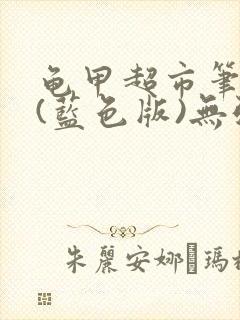 龟甲超市筆
(藍色版)無
朱麗安娜 瑪格